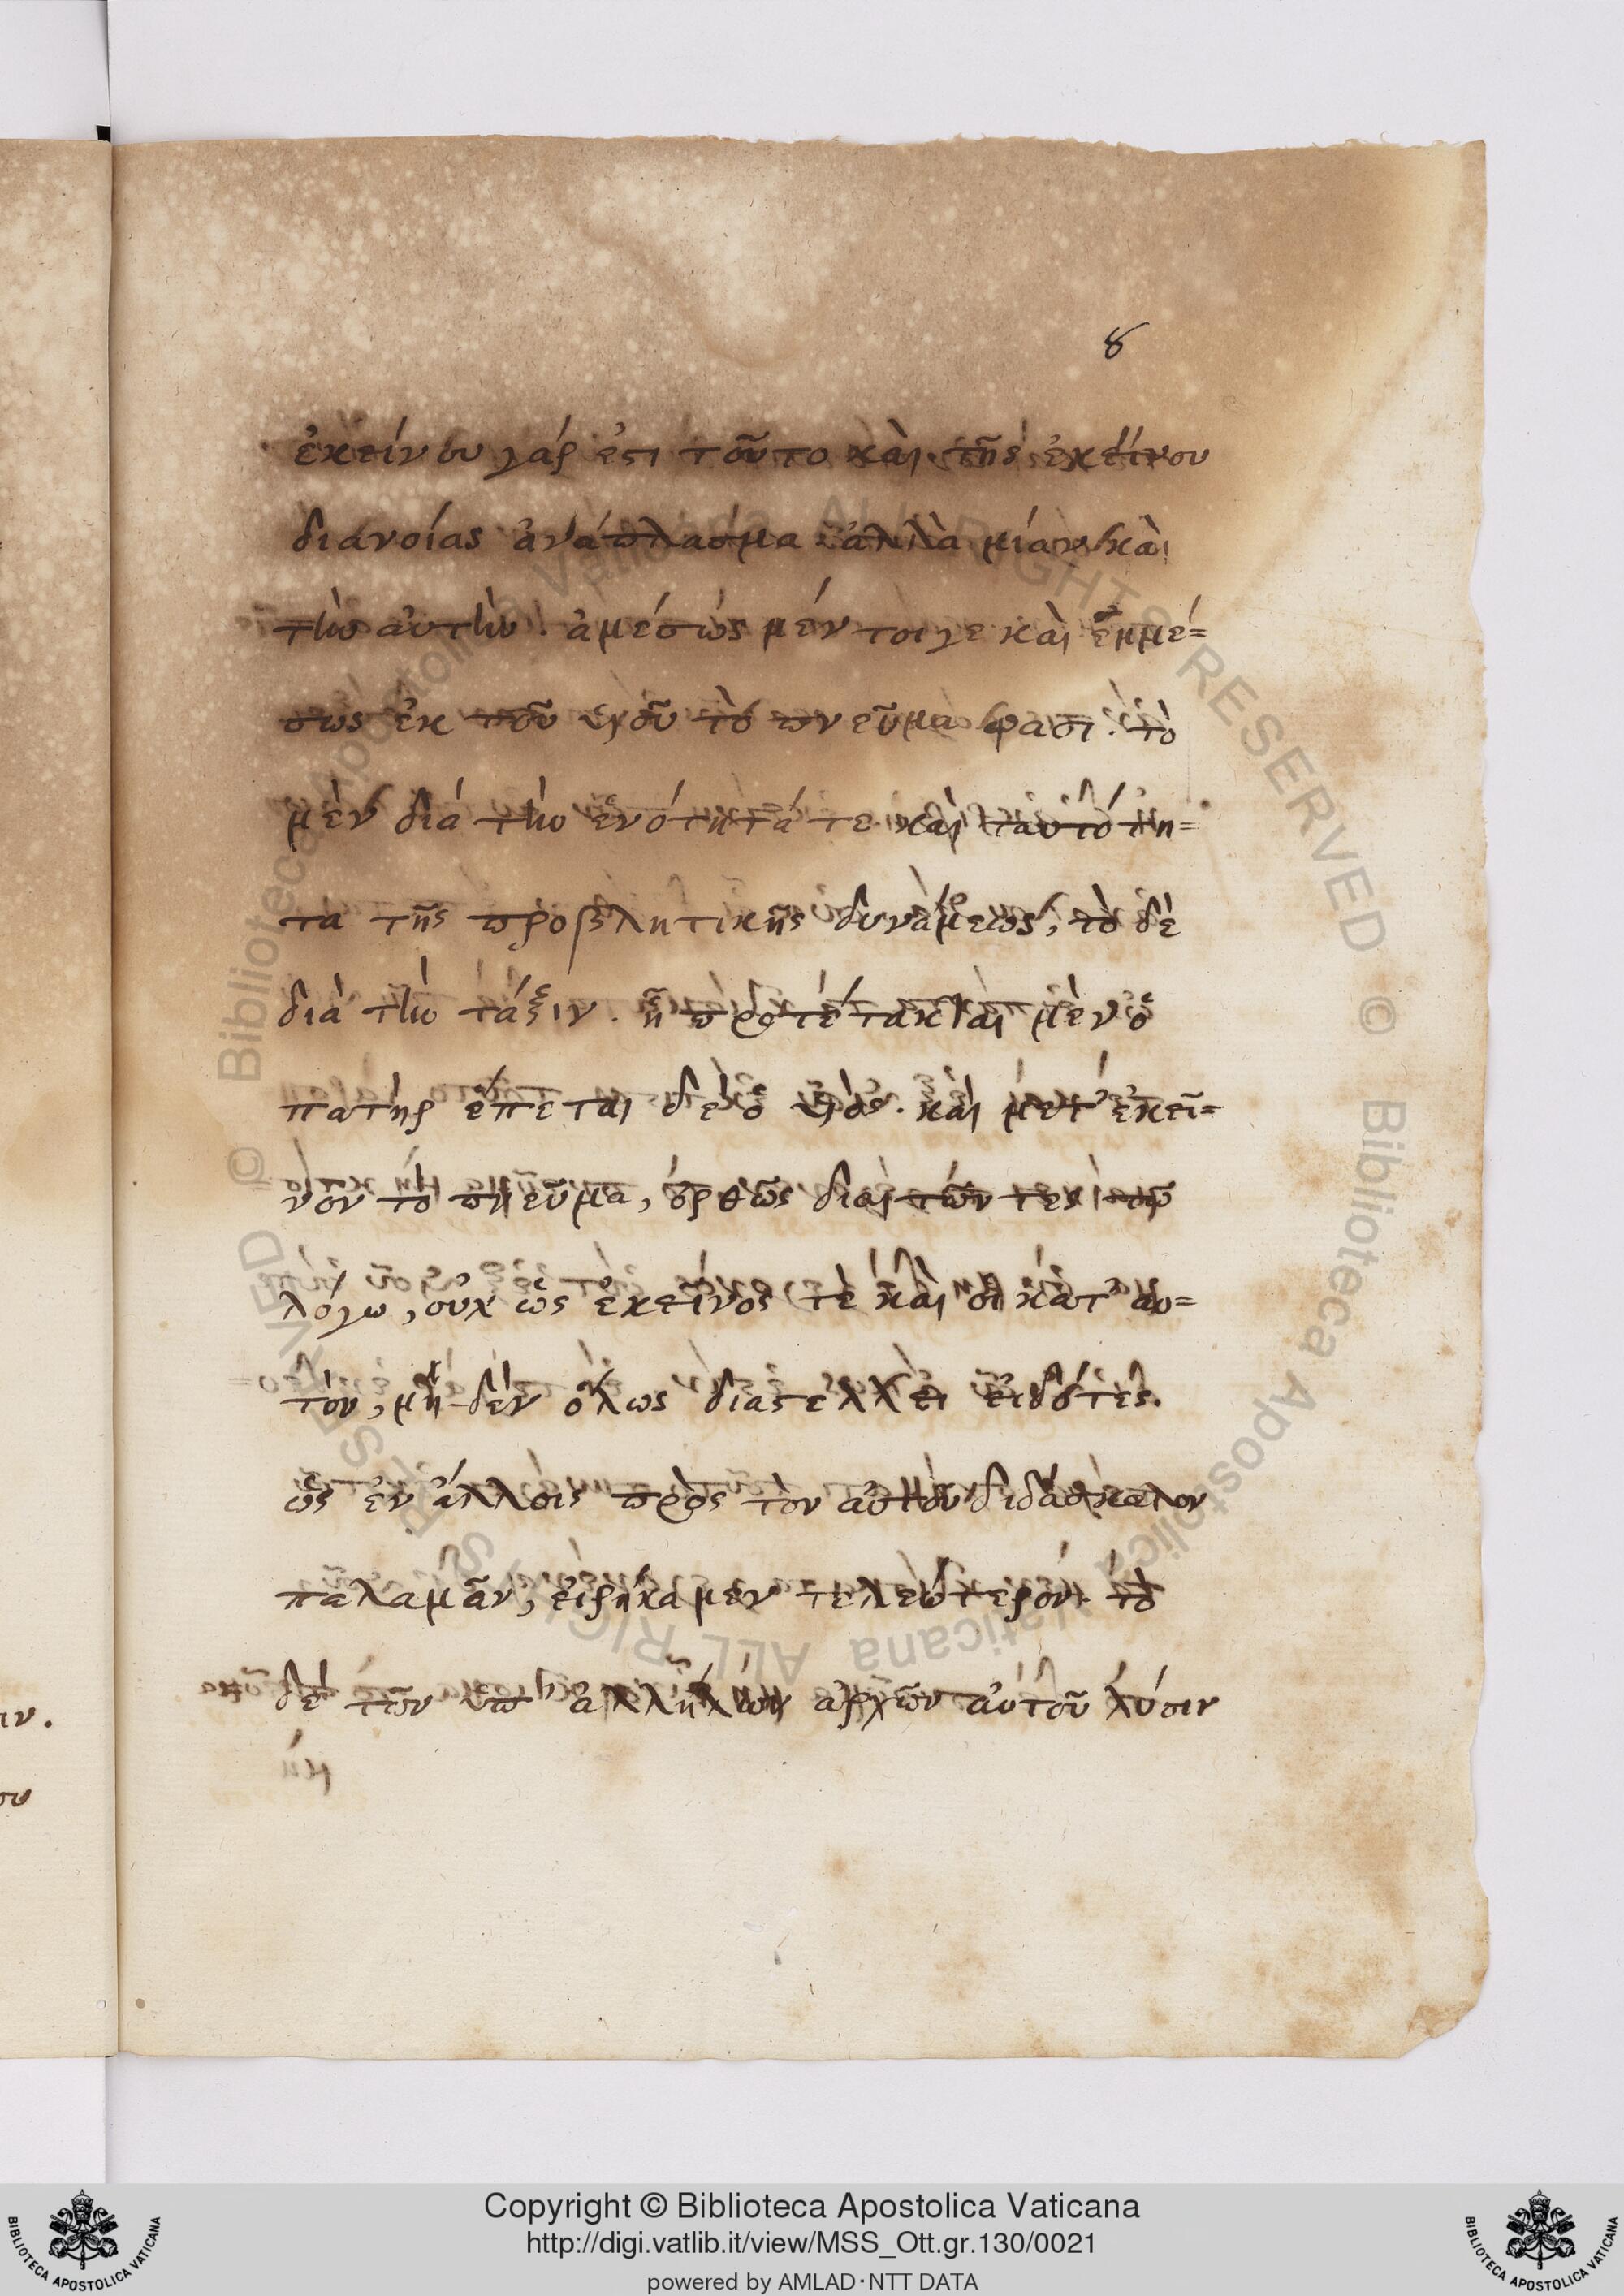 8
ἐκείνου γάρ ἐστι τοῦτο καὶ τῆς ἐκείνου
διανοίας ἀνάπλασμα ἀλλὰ μίαν καὶ
τὴν αὐτὴν. ἀμέσως μέν τοιγε καὶ ἐμμέ=
σως ἐκ τοῦ υἱοῦ τὸ πνεῦμα φασι. τὸ
μὲν διά τὴν ἑνότητά τε καὶ ταυτότη=
τα τῆς προβλητικῆς δυνάμεως, τὸ δὲ
διὰ τὴν τάξιν. ᾗ προτέτακται μὲν ὁ
πατὴρ ἕπεται δὲ ὁ υἱός. καὶ μετ' ἐκεῖ=
νον τὸ πνεῦμα, ὀρθῶς διαιτῶντες τῷ
λόγω, οὐχ ὡς ἐκεῖνος τὲ καὶ οἱ κατ' αυ=
τὸν, μηδὲν ὅλως διαστέλλει εἰδότες.
ὡς ἐν ἄλλοις πρὸς τὸν αὐτὸν διδάσκαλον
παλαμᾶν, εἰρήκαμεν τελεώτερον. τὸ
δὲ τῶν ὑπ' ἀλλήλων ἀρχῶν αὐτοῦ λύσιν
ιν.
ου
Copyright © Biblioteca Apostolica Vaticana
http://digi.vatlib.it/view/MSS_Ott.gr.130/0021
powered by AMLAD·NTT DATA
BIBLIOTECA APOSTOLICA VATICANA
BIBLIOTECA APOSTOLICA VATICANA
© Biblioteca Apostolica Vaticana ALL RIGHTS RESERVED © Biblioteca Apostolica Vaticana ALL RIGHTS RESERVED